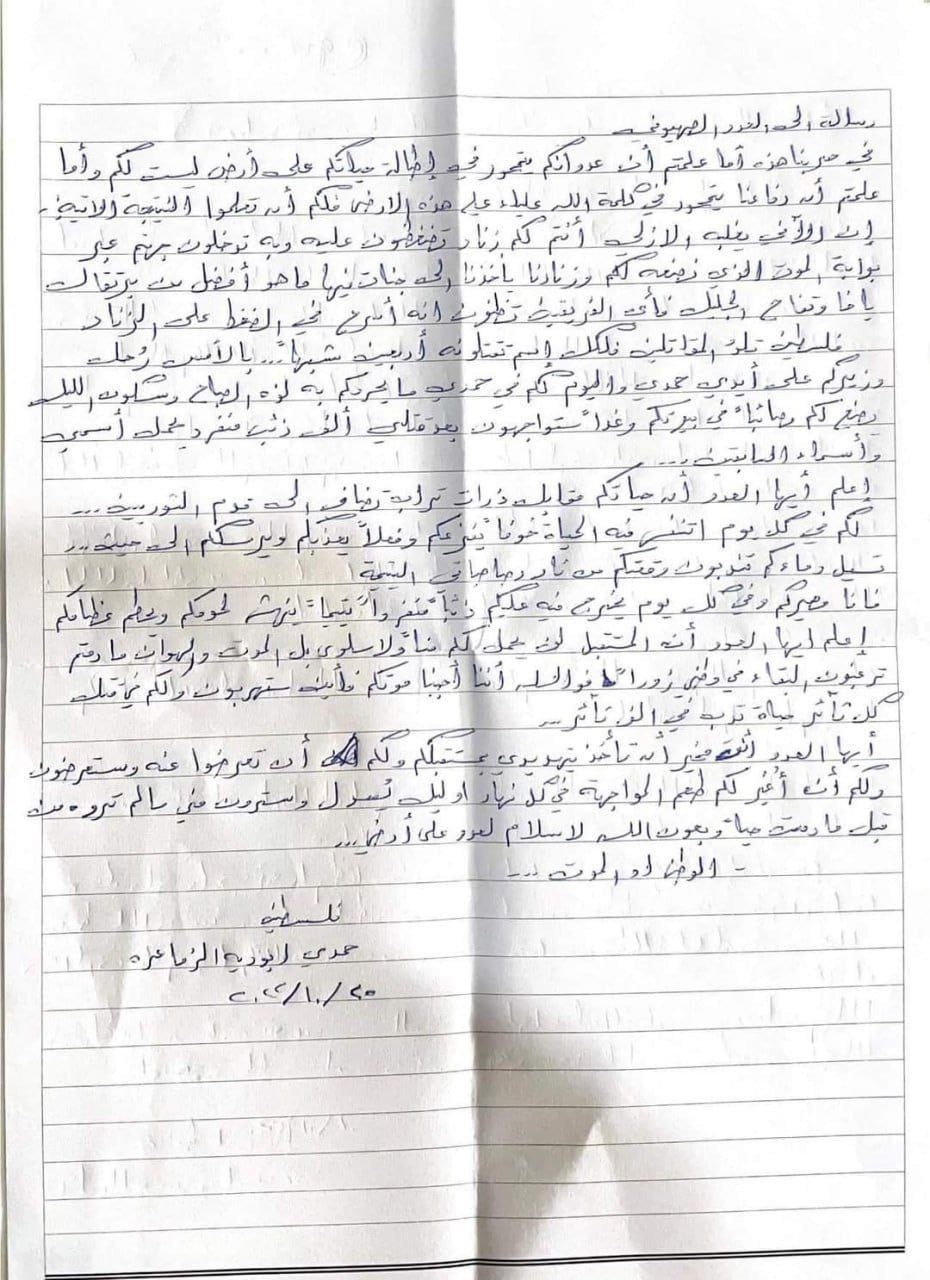 رسالة الى العدو الصهيوني
في حربنا هذه أما علمتم أن عدوانكم يتمحور في إطالة حياتكم على أرض ليست لكم وأما
علمتم أن دفاعنا يتمحور في كلمة الله علياء على هذه الارض فلكم أن تعلموا النتيجة الاتية،
إن الآفي يغلبه الازلي أنتم لكم زناد تضغطون عليه وبه توخلون جهنم عبر
بوابة الموت الذي نصنعه لكم وزنادنا يأخذنا الى جنات فيها ما هو أفضل من برتقال
يافا وتفاح الجليل فأي الفريقين تظنون انه أسرع في الضغط على الزناد
فلسطين تلد المقاتلين فلكل إسم تقتلونه أربعين شبيهاً... بالأمس رُحل
وزيركم على أيدي حمدي واليوم لكم في حمدي ما يحرمكم به لذه الصباح وسكون الليل
وضع لكم مصائباً في بيوتكم وغداً ستواجهون بعد قتلي ألف ذئب منفرد يحمل أسمي
وأسماء السابقين...
إعلم أيها العدو أن حياتكم مقابل ذرات تراب تضاف الى قدم الثورين...
لكم في كل يوم اتنفس فيه الحياة خوفاً يُفزعكم وفعلاً يعذبكم ويرسلكم الى حيث...
تسيل دماءكم فتذوبون رقتكم من نار رصاصاتي اليتيمة
فانا مصيركم وفي كل يوم يخرج فيه عليكم ذئباً منفرداً يتيماً ينهش لحومكم ويحطم عظامكم
إعلم ايها العدو أن المستقبل لن يحمل لكم مناً ولا سلوى بل الموت والهوان ما دمتم
ترغبون البقاء في وطني زوراً فوالله أننا أحببنا موتكم فأين ستهربون ولكم في قتل
كل ثأئر حياة تدب في الف ثأئر...
أيها العدو أنت مخير أن تأخذ تهديدي بمستقبلكم ولكم أن تعرضوا عنه وستعرضون
ولكم أن أُغير لكم طعم المواجهة في كل نهار او ليل يُسدل وسترون مني ما لم تروه من
قبل ما دمت حياً وبعون الله لا سلام لعدو على أرضي...
- الوطن او الموت...
فلسطين
حمدي ابو ديه الزماعره
٢٠٢٢/١٠/٢٥